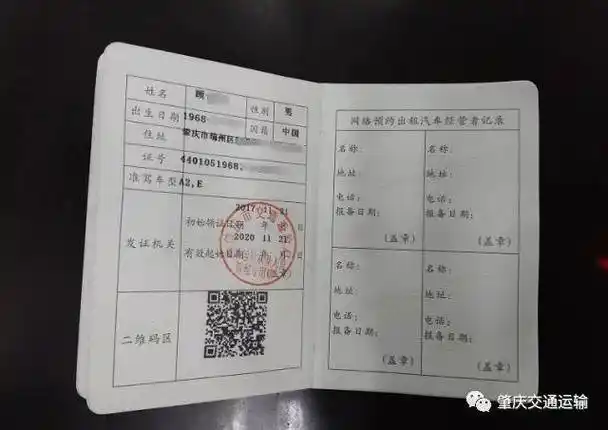 姓名 顾 性别 男
出生日期 1968 国籍 中国
住址 肇庆市端州区
证号 4401051968
准驾车型 A2,E
发证机关
2017 11 21
初始领证日期 年
2020 11 21
有效起始日期
二维码区
网络预约出租汽车经营者记录
名称: 名称:
地址: 地址:
电话: 电话:
报备日期: 报备日期:
(盖章) (盖章)
名称: 名称:
地址: 地址:
电话: 电话:
报备日期: 报备日期:
(盖章) (盖章)
肇庆交通运输